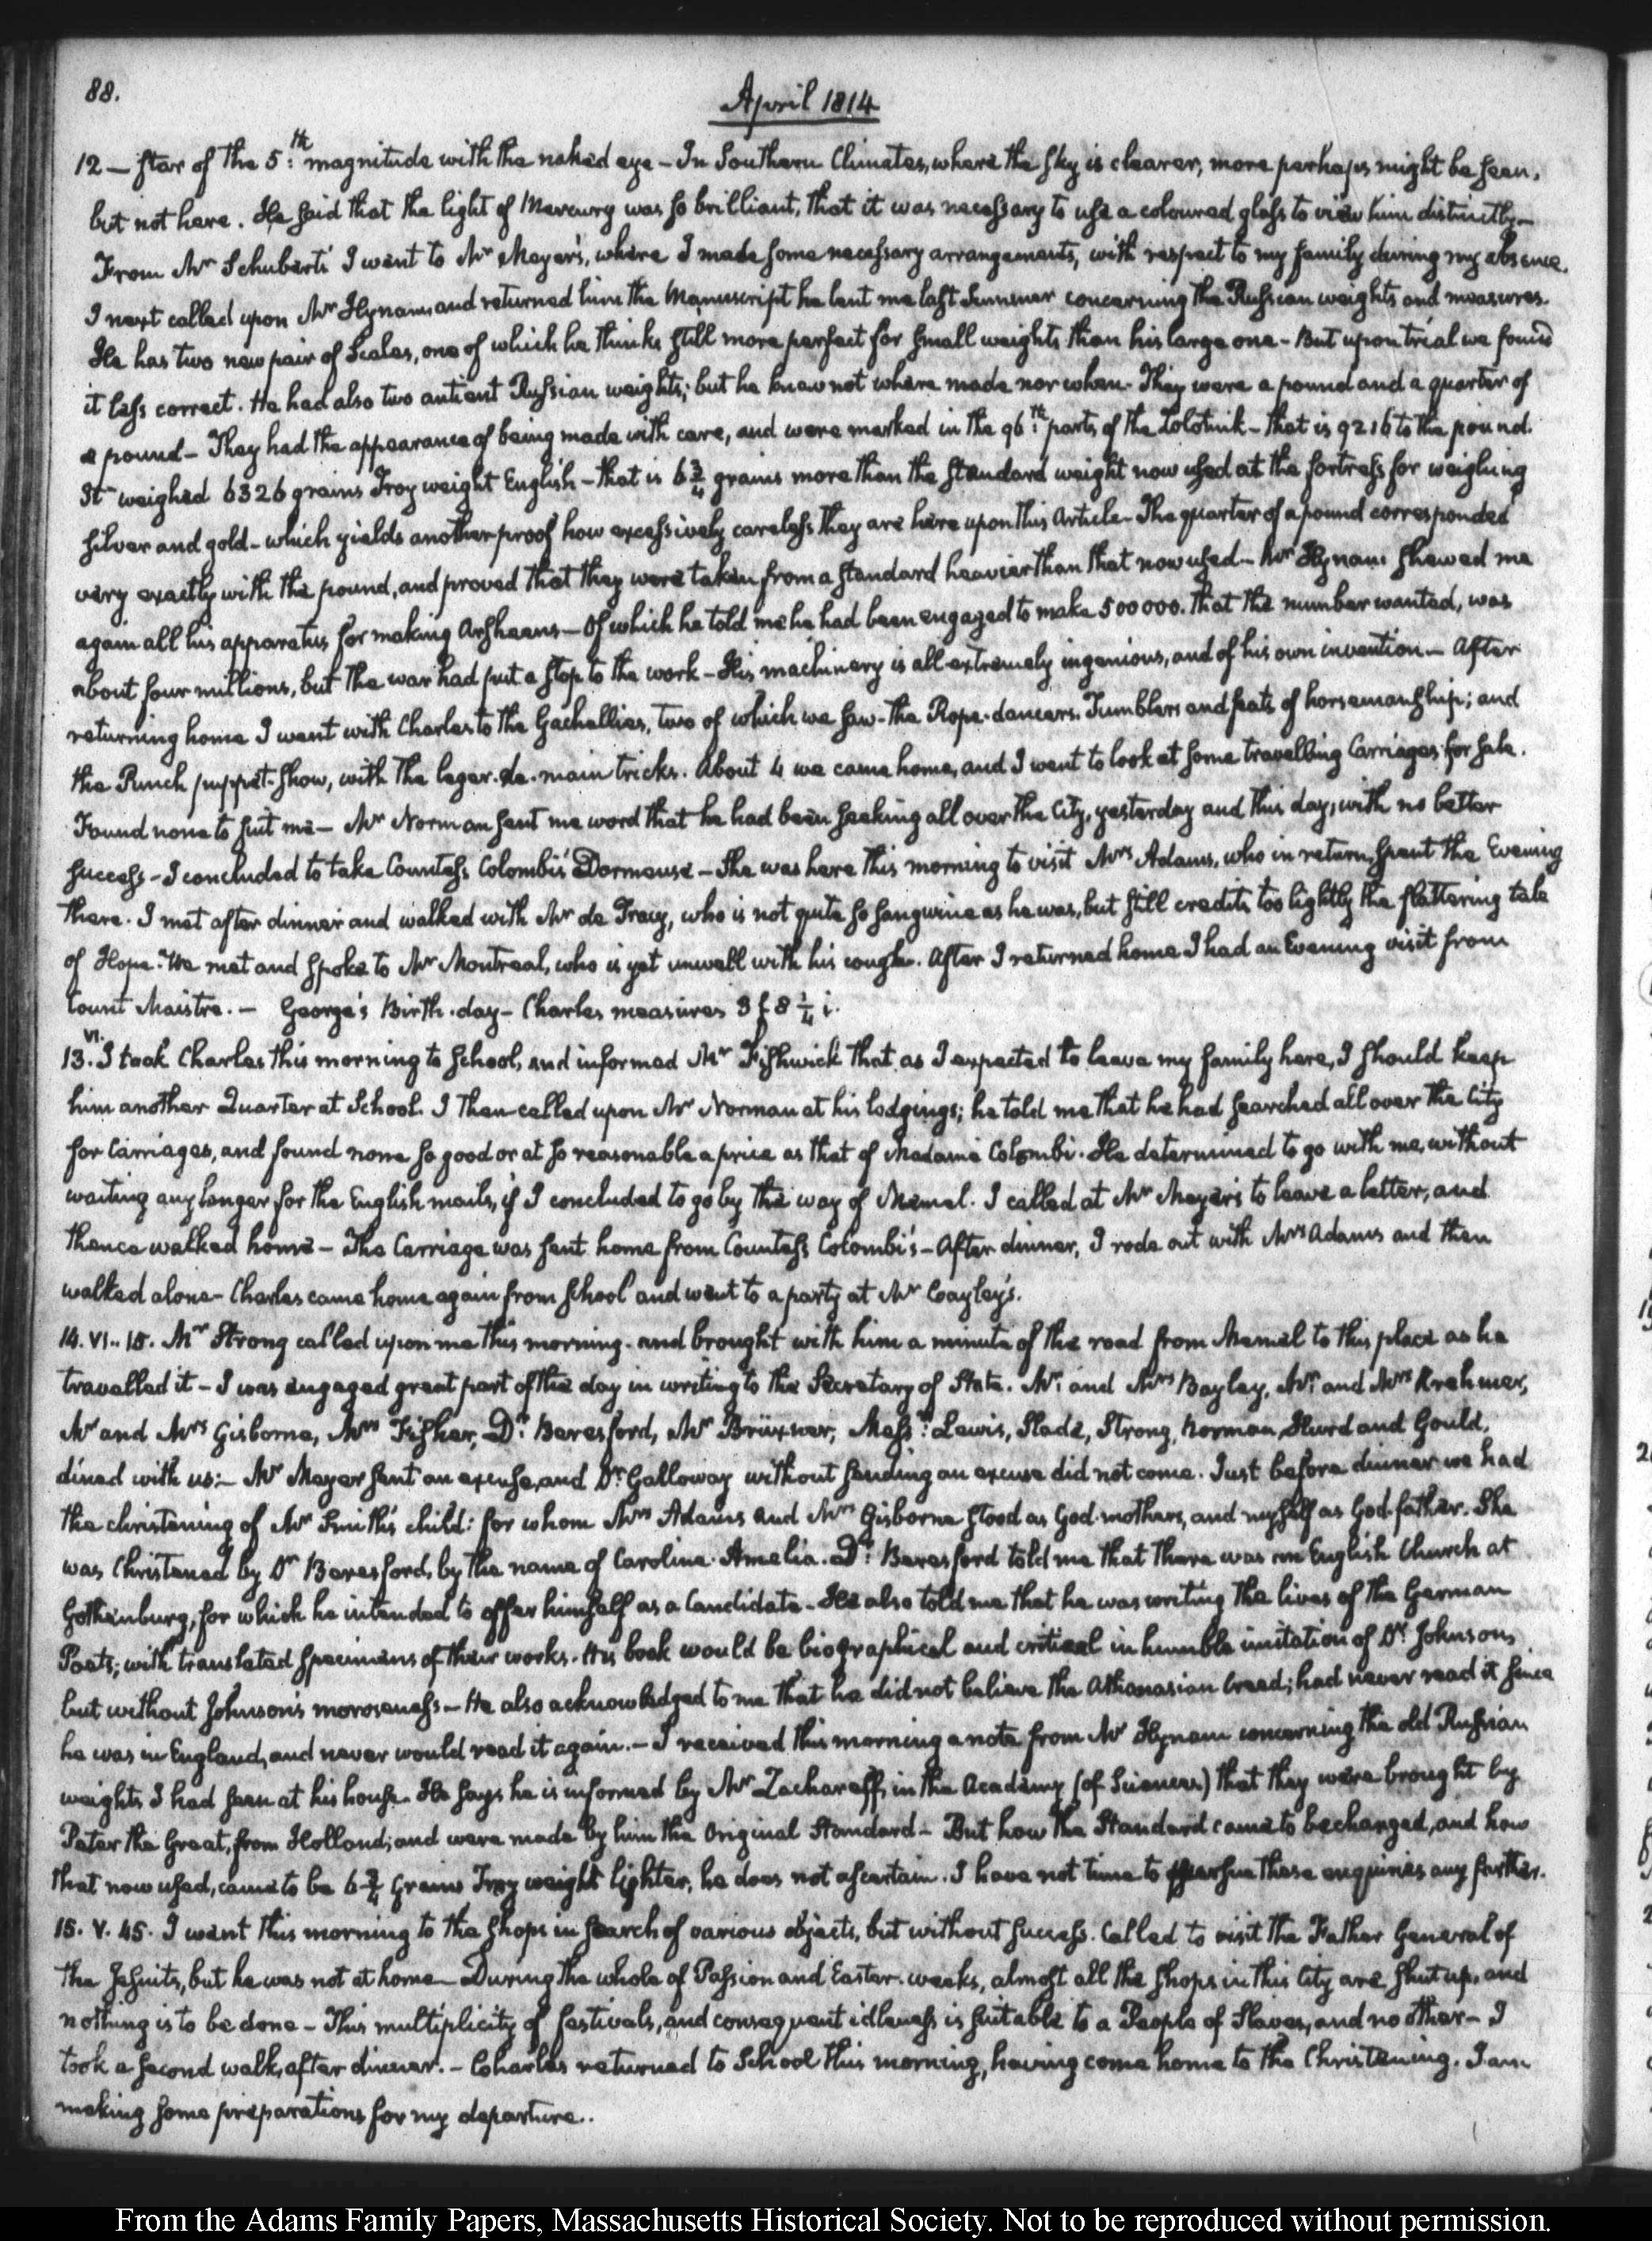 88.
April 1814
12 — star of the 5:th magnitude with the naked eye - In Southern Climates, where the sky is clearer, more perhaps might be seen,
but not here. He said that the light of Mercury was so brilliant, that it was necessary to use a coloured glass to view him distinctly —
From Mr Schubert's I went to Mr Meyer's, where I made some necessary arrangements, with respect to my family during my absence.
I next called upon Mr Hynam, and returned him the Manuscript he lent me last Summer concerning the Russian weights and measures.
He has two new pair of Scales, one of which he thinks still more perfect for small weights than his large one - But upon trial we found
it less correct. He had also two antient Russian weights; but he knew not where made nor when - They were a pound and a quarter of
a pound - They had the appearance of being made with care, and were marked in the 96:th parts of the Zolotnik - that is 9216 to the pound.
It weighed 6326 grains Troy weight English - that is 6 3/4 grains more than the standard weight now used at the fortress for weighing
silver and gold - which yields another proof how excessively careless they are here upon this Article - The quarter of a pound corresponded
very exactly with the pound, and proved that they were taken from a standard heavier than that now used - Mr Hynam shewed me
again all his apparatus for making Arsheens - Of which he told me he had been engaged to make 500000. that the number wanted, was
about four millions, but the war had put a stop to the work - His machinery is all extremely ingenious, and of his own invention — After
returning home I went with Charles to the Gachallies, two of which we saw - the Rope-dancers. Tumblers and feats of horsemanship; and
the Punch puppet-show, with the leger-de-main tricks. About 4 we came home, and I went to look at some travelling Carriages for sale.
Found none to suit me — Mr Norman sent me word that he had been seeking all over the City, yesterday and this day, with no better
success - I concluded to take Countess Colombi's Dormeuse - She was here this morning to visit Mrs Adams, who in return, spent the Evening
there. I met after dinner and walked with Mr de Tracy, who is not quite so sanguine as he was, but still credits too lightly the flattering tale
of Hope. We met and spoke to Mr Montreal, who is yet unwell with his cough. After I returned home I had an Evening visit from
Count Maistre. — George's Birth-day - Charles measures 3 f 8 1/4 i.
13. VI. I took Charles this morning to School, and informed Mr Fishwick that as I expected to leave my family here, I should keep
him another Quarter at School. I then called upon Mr Norman at his lodgings; he told me that he had searched all over the City
for Carriages, and found none so good or at so reasonable a price as that of Madame Colombi. He determined to go with me, without
waiting any longer for the English mails, if I concluded to go by the way of Memel. I called at Mr Meyer's to leave a letter, and
thence walked home - The Carriage was sent home from Countess Colombi's - After dinner, I rode out with Mrs Adams and then
walked alone - Charles came home again from School and went to a party at Mr Cayley's.
14. VI.. 15. Mr Strong called upon me this morning, and brought with him a minute of the road from Memel to this place as he
travelled it - I was engaged great part of the day in writing to the Secretary of State. Mr: and Mrs Bayley, Mr: and Mrs Krehmer,
Mr and Mrs Gisborne, Mrs Fisher, Dr: Beresford, Mr Brüxner, Messrs: Lewis, Slade, Strong, Norman, Hurd and Gould,
dined with us:- Mr Meyer sent an excuse, and Dr Galloway without sending an excuse did not come. Just before dinner we had
the christening of Mr Smith's child: for whom Mrs Adams and Mrs Gisborne stood as God-mothers, and myself as God-father. She
was Christened by Dr Beresford, by the name of Caroline-Amelia. Dr: Beresford told me that there was an English Church at
Gothenburg, for which he intended to offer himself as a Candidate - He also told me that he was writing the lives of the German
Poets; with translated specimens of their works. His book would be biographical and critical in humble imitation of Dr Johnson,
but without Johnson's moroseness - He also acknowledged to me that he did not believe the Athanasian Creed; had never read it since
he was in England, and never would read it again. - I received this morning a note from Mr Hynam concerning the old Russian
weights I had seen at his house. He says he is informed by Mr Zacharoff, in the Academy (of Sciences) that they were brought by
Peter the Great, from Holland; and were made by him the Original Standard - But how the Standard came to be changed, and how
that now used, came to be 6 3/4 Grains Troy weight lighter, he does not ascertain. I have not time to pursue these enquiries any further.
15. V. 45. I went this morning to the shops in search of various objects, but without success. Called to visit the Father General of
the Jesuits, but he was not at home — During the whole of Passion and Easter-weeks, almost all the shops in this City are shut up, and
nothing is to be done - This multiplicity of festivals, and consequent idleness is suitable to a People of Slaves, and no other - I
took a second walk, after dinner. - Charles returned to School this morning, having come home to the Christening. I am
making some preparations for my departure..
From the Adams Family Papers, Massachusetts Historical Society. Not to be reproduced without permission.